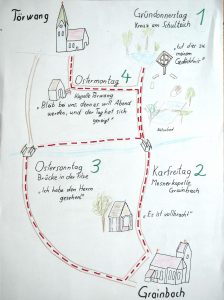 Törwang
Gründonnerstag 1
Kreuz am Schulbach
"Tut dies zu
meinem
Gedächtnis"
Ostermontag 4
Kapelle Törwang
"Bleib bei uns, denn es will Abend
werden, und der Tag hat sich
geneigt"
Ostersonntag 3
Brücke in der Filze
"Ich habe den Herrn
gesehen"
Karfreitag 2
Mesnerkapelle
Grainbach
"Es ist vollbracht"
Grainbach